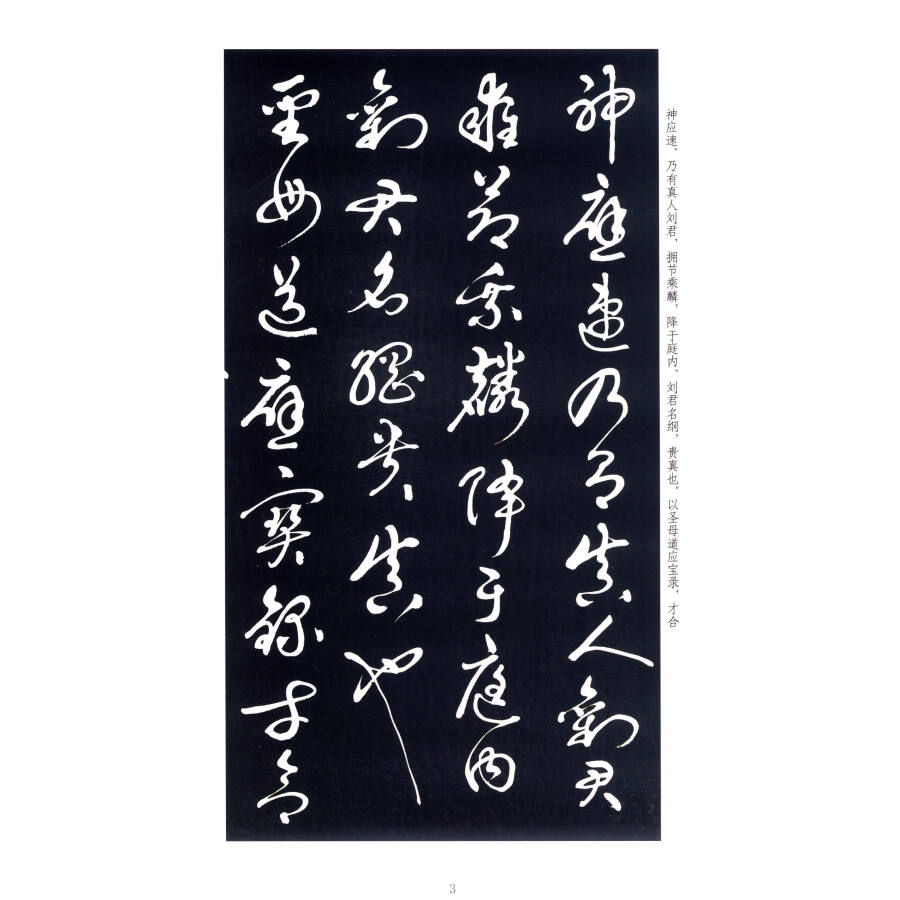 神应速。乃有真人刘君，拥节乘麟，降于庭内。刘君名纲，贵真也。以圣母道应宝录，才合
神應速乃有真人劉君
擁節乘麟降于庭内
劉君名綱貴真也
聖母道應寶錄才合
3